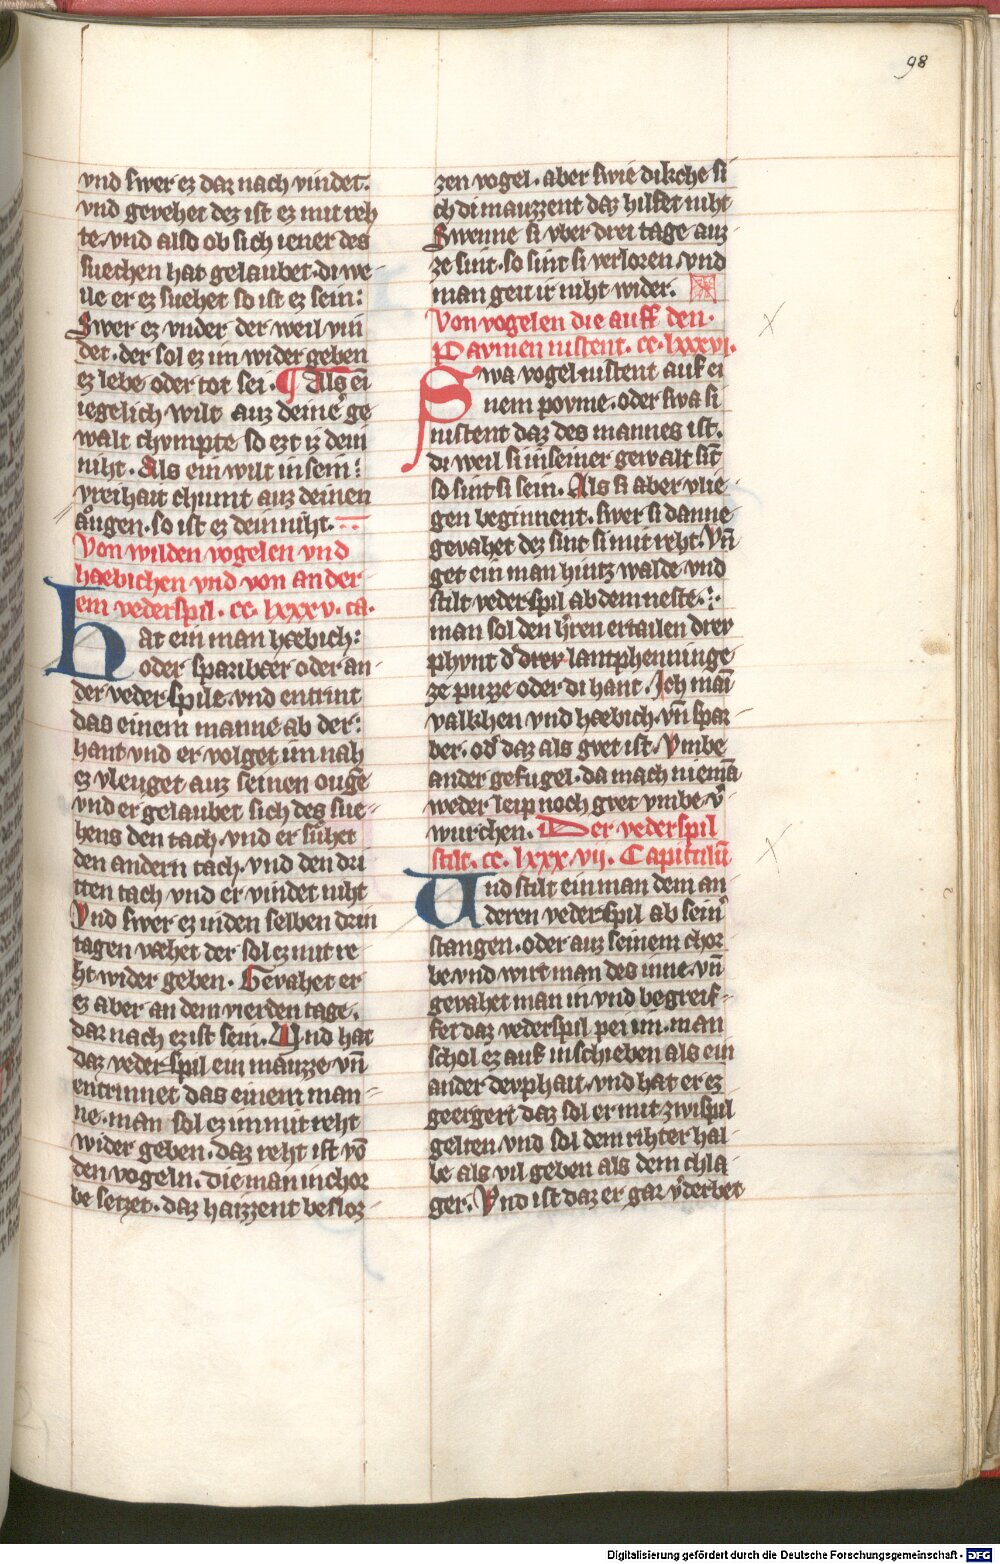 98
vnd swer ez dar nach vindet.
vnd gevehet dez ist ez mit reh
te. vnd also ob sich iener des
suechen hat gelaubet. di we-
ile er ez suehet so ist ez sein:
Swer ez vnder der weil vin
det. der sol ez im wider geben
ez lebe oder tot sei. ¶ Als ei
iegelich wilt auz deine ge
walt chvmpte so ezt iz dein
niht. Als ein wilt in sein:
vreihait chumt auz deinen
augen. so ist ez dein niht.
Von wilden vogelen vnd
haebichen vnd von ander
em vederspil. cc. lxxxv. ca.
Hat ein man haebich:
oder sparibaer oder an-
der veder spile. vnd entrint
das einem manne ab der:
hant vnd er volget im nah
ez vleuget auz seinen ouge
vnd er gelaubet sich des sue-
hens den tach. vnd er suhet
den andern tach. vnd den dri
tten tach vnd er vindet niht
Vnd swer ez in den selben drin
tagen vaehet der sol ez mit re
ht wider geben. Gevahet er
ez aber an dem vierden tage.
dar nach ez ist sein. Und hat
daz veder spil ein mauzze vn̄
entrinnet das einem man-
ne. man sol ez im mit reht
wider geben. daz reht ist vō
den vogeln. die man in chor
be setzet. daz haizzent besloz-
zen vogel. aber swie dikche si
ch di mauzzent daz hilfet niht
Swenne si vber drei tage auz-
ze sint. so sint si verloren. vnd
man geit ir niht wider.
Von vogelen die auff den.
Pavmen nistent. cc. lxxxvi.
Swa vogel nistent auf ei
nem povme. oder swa si
nistent daz des mannes ist.
di weil si in seiner gewalt sīt
so sint si sein. Als si aber vlie-
gen beginnent. swer si danne
gevahet dez sint si mit reht. Vn̄
get ein man hintz walde vnd
stilt veder spil ab dem neste.:.
man sol den herren ertailen drev
phvnt oder drev lantphenninge
ze puzze oder di hant. Ich main
valkhen vnd haebich. vn̄ spar-
ber. od daz als gvet ist. Vmbe
ander gefugel. da mach niemā
weder leip noch gvet vmbe v̄
wurchen. Der vederspil
stilt. cc. lxxx. vij. Capitulū
Und stilt ein man dem an-
deren vederspil ab sein
stangen. oder auz seinem chor
be. vnd wirt man des inne. vn̄
gevahet man in vnd begreif-
fet daz vederspil pei im. man
schol ez auf in schieben als ein
ander devphait. vnd hat er ez
geergert daz sol er mit zwispil
gelten vnd sol dem rihter hal-
be als vil geben als dem chla-
ger. Vnd ist daz er gar v̄derbet
Digitalisierung gefördert durch die Deutsche Forschungsgemeinschaft - DFG